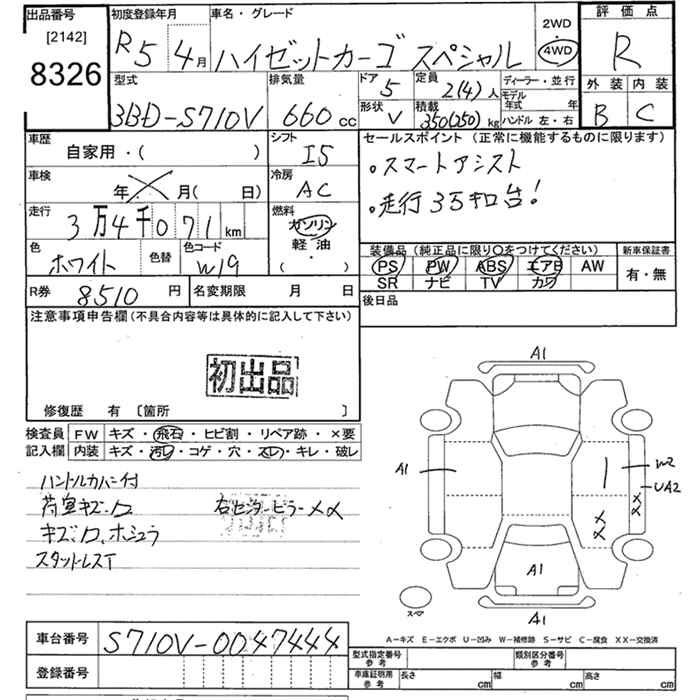 出品番号
[2142]
8326
初度登録年月
R5年4月
車名・グレード
ハイゼットカーゴ スペシャル
2WD
・
4WD
評価点
R
外装 内装
B C
型式
3BD-S710V
排気量
660 cc
ドア
5
形状
V
定員
2(4)人
積載
350(250)kg
ディーラー・並行
モデル年式 年
ハンドル 左・右
車歴
自家用・( )
車検
年 月( 日)
走行
3万4千071km
色
ホワイト
色替
色コード
W19
シフト
I5
冷房
AC
燃料
ガソリン
軽油
( ・ )
セールスポイント (正常に機能するものに限ります)
。スマートアシスト
。走行3万キロ台!
装備品(純正品に限り○をつけてください)
PS PW ABS エアB AW
SR ナビ TV カワ
新車保証書
有・無
後日品
R券 8510円
名変期限 月 日
注意事項申告欄(不具合内容等は具体的に記入して下さい)
初出品
修復歴 有 〔箇所 〕
検査員 FW キズ・飛石・ヒビ割・リペア跡・×要
記入欄 内装 キズ・汚レ・コゲ・穴・スレ・キレ・破レ
ハンドルカバー付
荷室キズ、ロ 右センターピラーXX
キズ、ロ、ホシュウ
スタットレスT
A1
A1
W2
UA2
XX
XX
A1
A1
スペア
A−キズ E−エクボ U−凹み W−補修跡 S−サビ C−腐食 XX−交換済
車台番号 S710V-0047444
登録番号
型式指定番号
参考
類別区分番号
参考
車庫証明用
参考
長さ cm
幅 cm
高さ cm